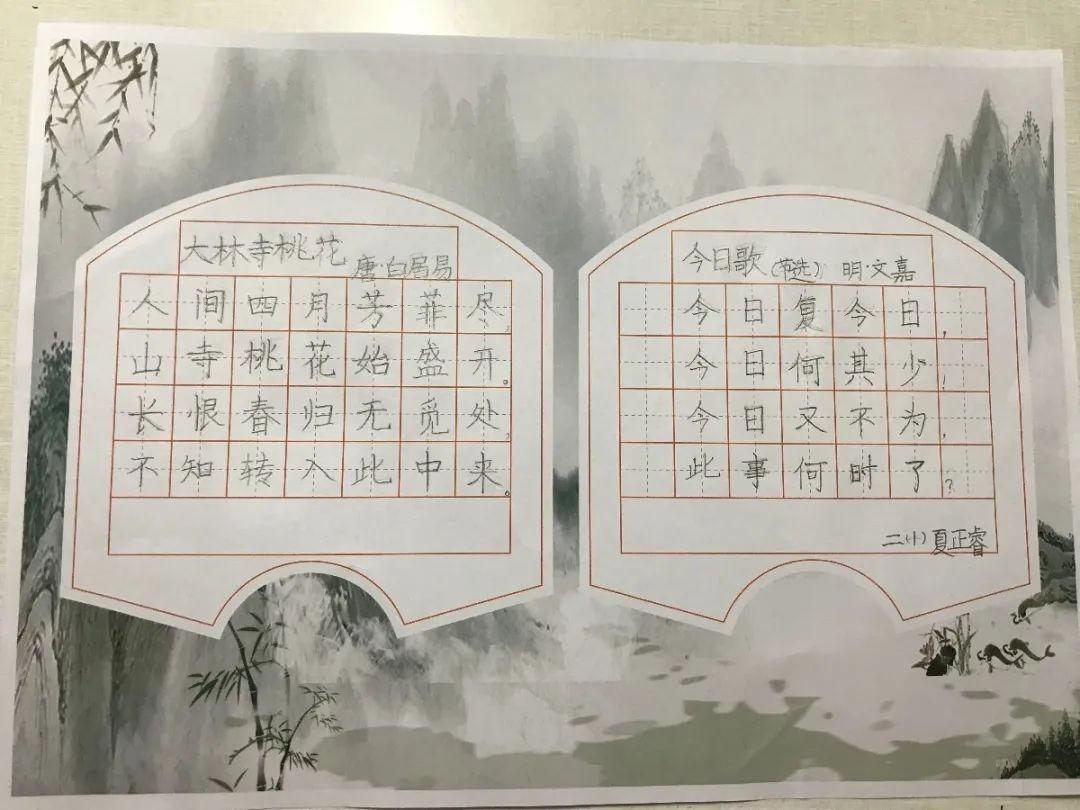 大林寺桃花
唐·白居易
人间四月芳菲尽,
山寺桃花始盛开。
长恨春归无觅处,
不知转入此中来。
今日歌(节选) 明·文嘉
今日复今日,
今日何其少!
今日又不为,
此事何时了?
二(十)夏正睿